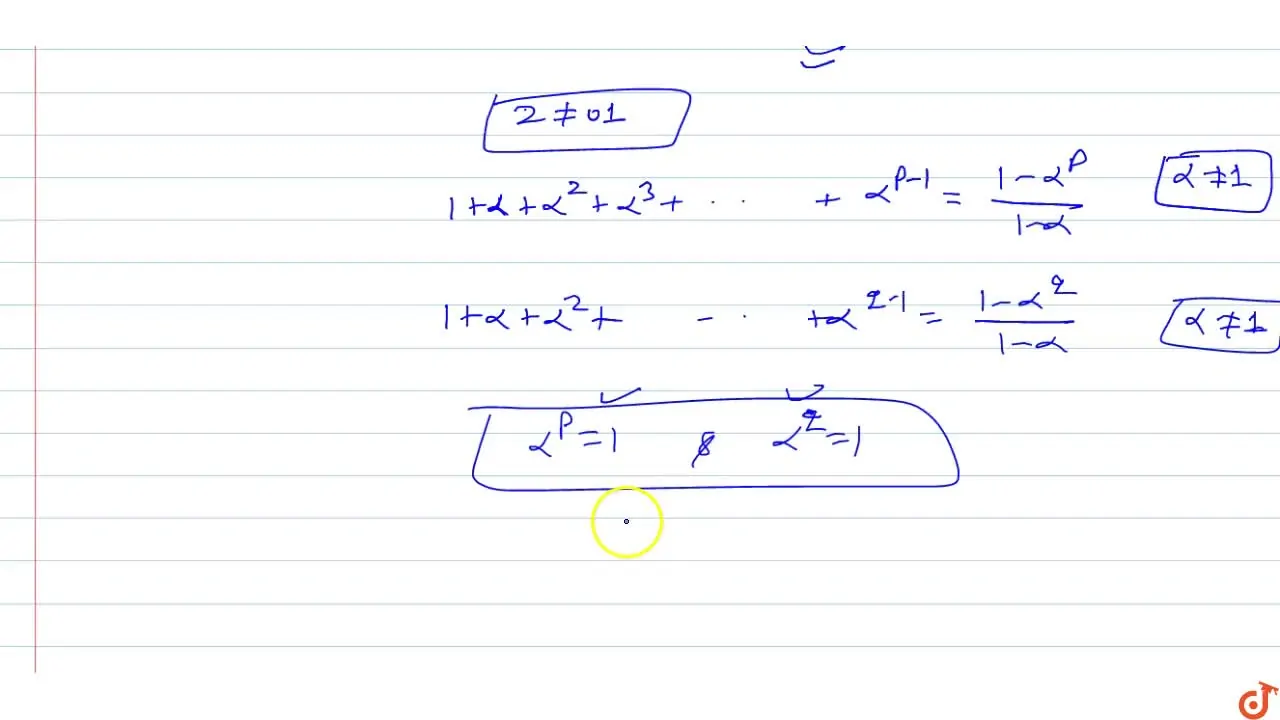 2 ≠ 01
1+α+α²+α³+ · · + α^(p-1) = (1-α^p)/(1-α) α≠1
1+α+α²+ - · +α^(q-1) = (1-α^q)/(1-α) α≠1
α^p=1 & α^q=1